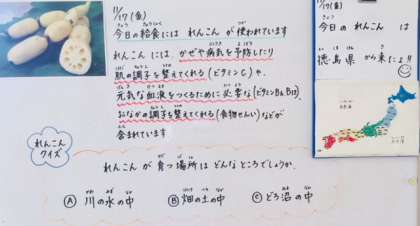 11/17(金)
今日の給食には れんこんが 使われています
れんこんには、かぜや病気を予防したり
肌の調子を整えてくれる(ビタミンC)や、
元気な血液をつくるために必要な(ビタミンB6 B12)、
おなかの調子を整えてくれる(食物せんい)などが
含まれています
れんこん
クイズ
れんこん が 育つ場所は どんなところでしょうか。
Ⓐ 川の水の中
Ⓑ 畑の土の中
Ⓒ どろ沼の中
11/17(金)
今日の れんこん は
徳島県 から来たよ!!